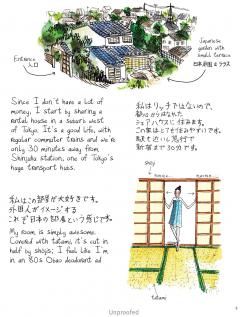 Entrance
入口
Japanese
garden with
small terrace
日本庭園とテラス
Since I don't have a lot of
money, I start by sharing a
rental house in a suburb west
of Tokyo. It's a good life, with
regular commuter trains and we're
only 30 minutes away from
Shinjuku station, one of Tokyo's
huge transport hubs.
私はリッチではないので、
シェアハウスに住みます。
この家はとても住みやすいです。
駅も近いし急行で
新宿まで30分です。
私はこの部屋が大好きです。
外国人がイメージする
これぞ日本の部屋という感じです。
My room is simply awesome.
Covered with tatami, it's cut in
half by shojis; I feel like I'm
in an 80s Obao deodorant ad
shoji
tatami
Unproofed